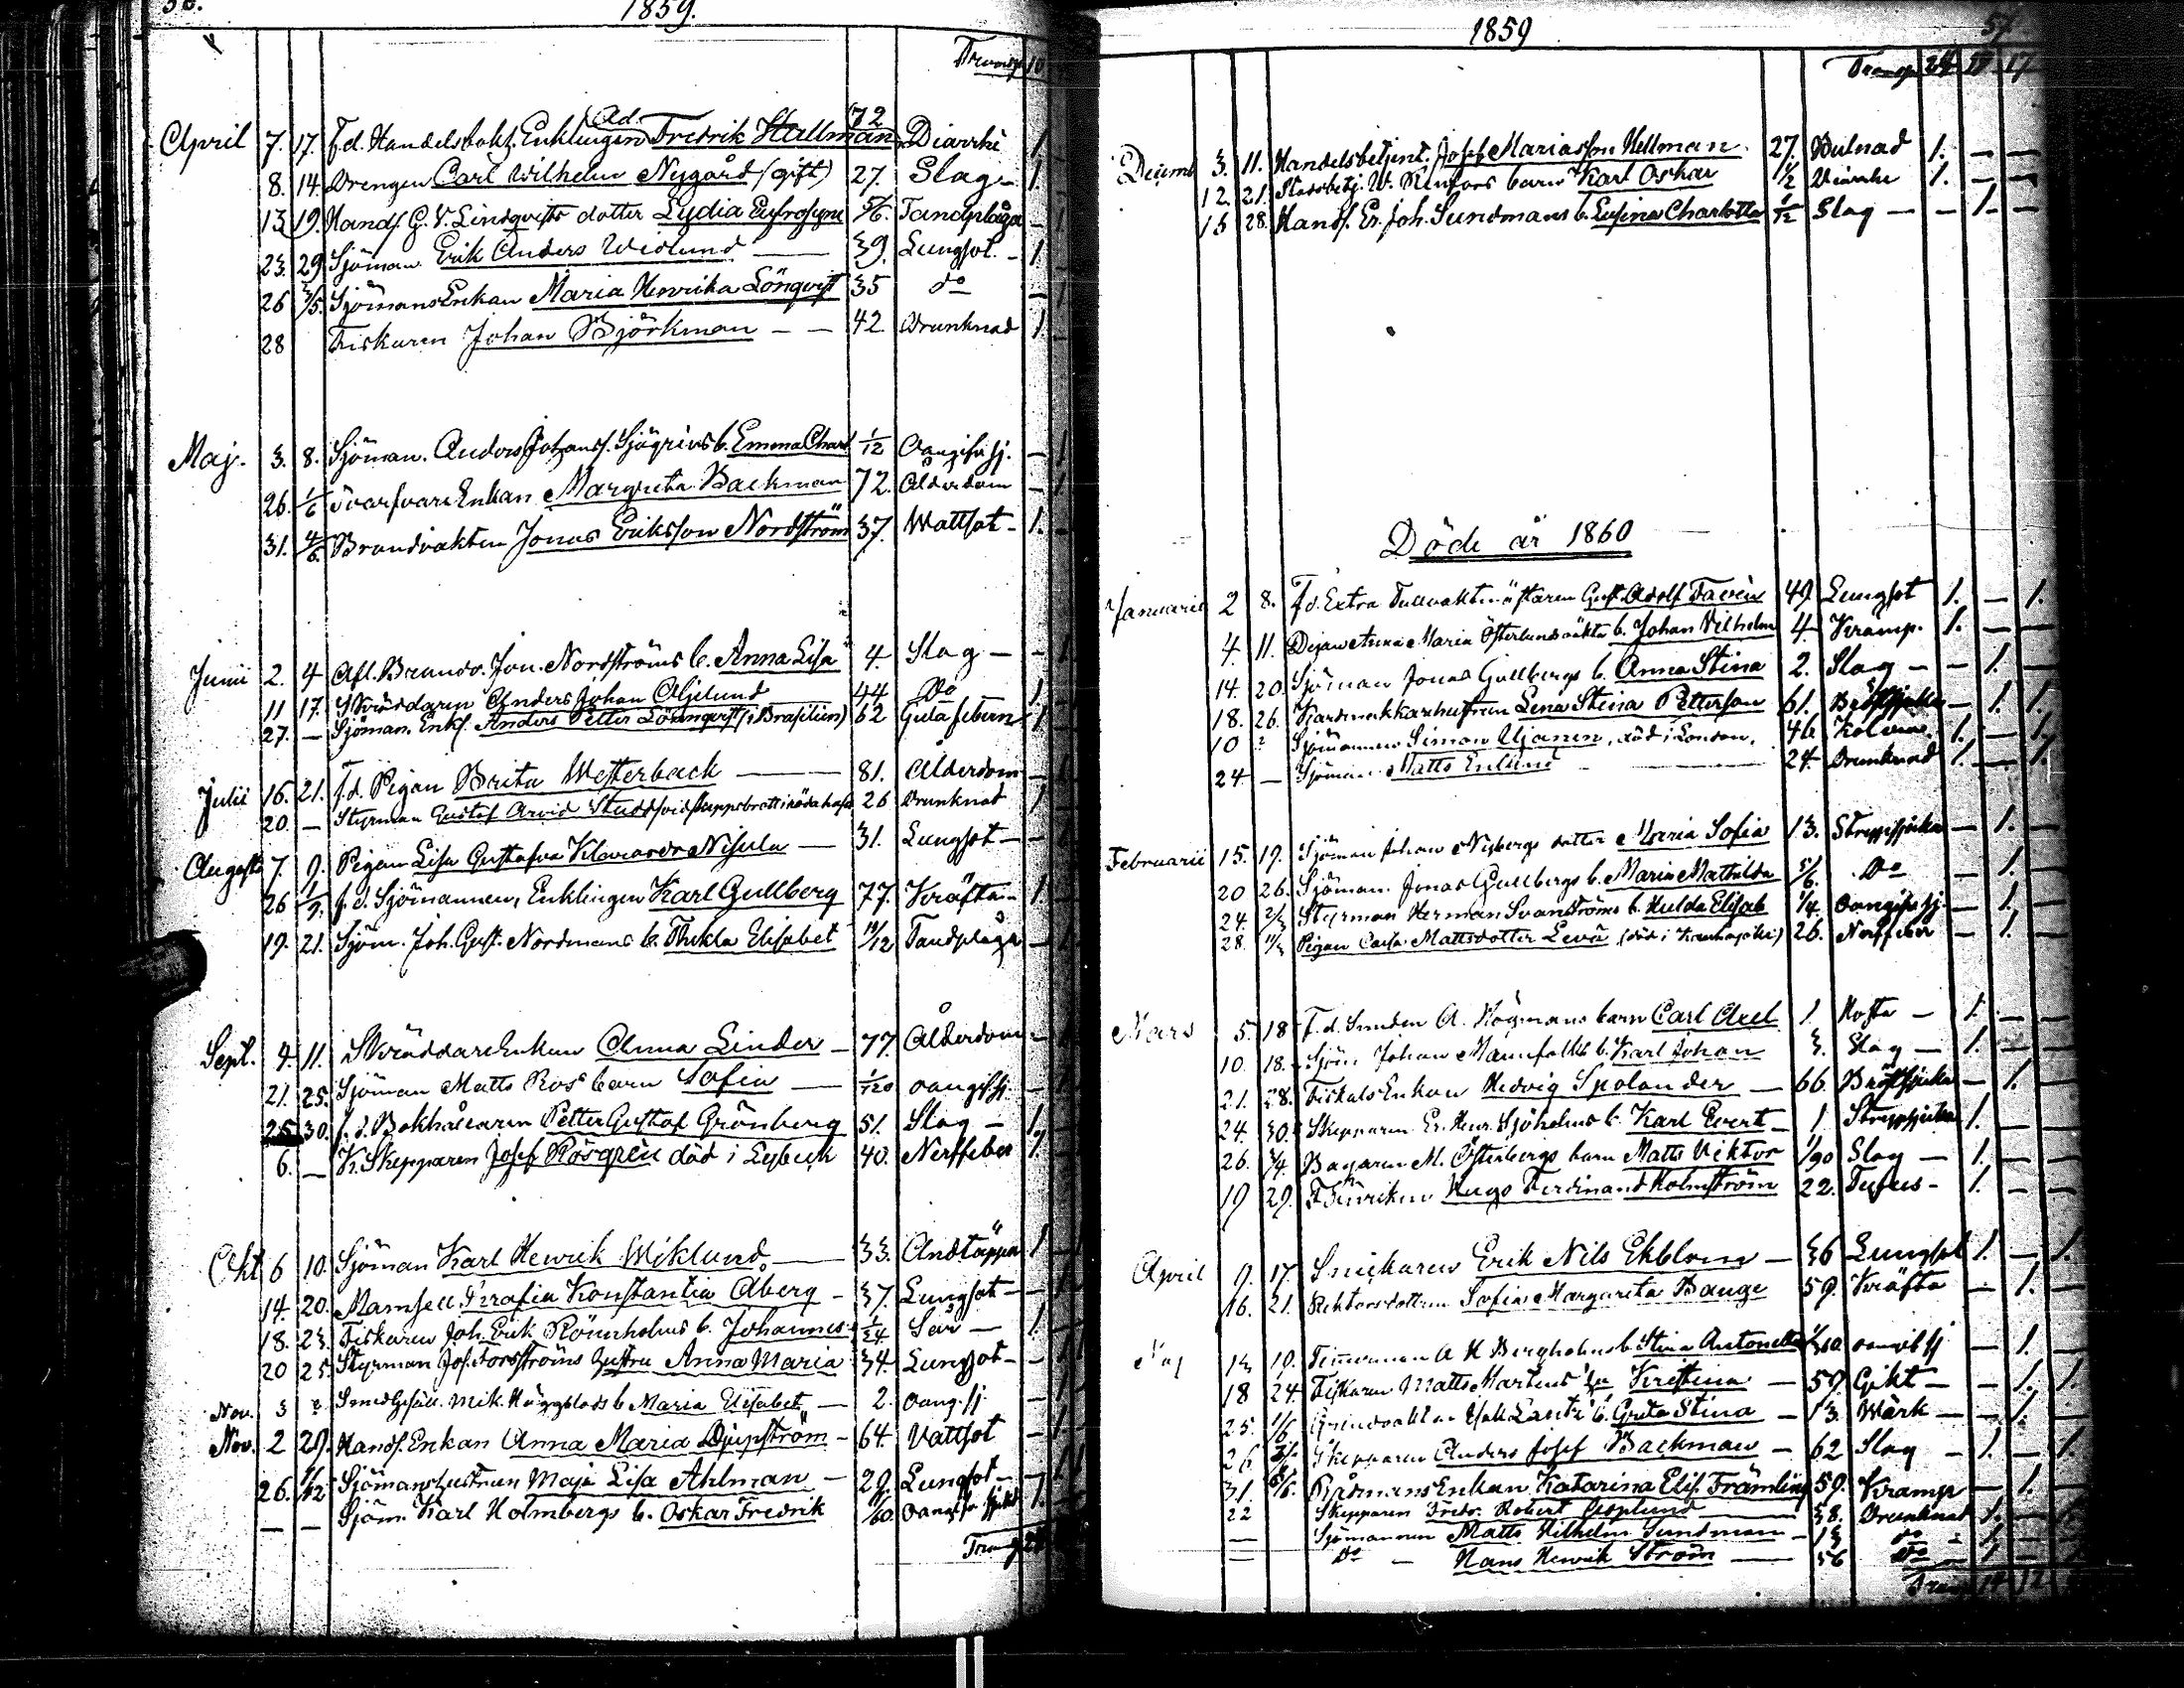 56.
1859.
Transp. 10
April 7. 17. f.d. Handelsbokh. Enklingen Ad. Fredrik Hallman 72 Diarrhé 1
8. 14. Drengen Carl Wilhelm Nygård (gift) 27. Slag – 1.
13 19. Hands. G. V. Lindqvists dotter Lydia Eufrosyne 5/6. Tandplåga – 1
23. 29. Sjöman Erik Anders Widlund — 39. Lungsot. – 1
26 3/5. Sjömans Enkan Maria Henrika Lönqvist 35 do – 1
28 Fiskaren Johan Björkman – – 42. Drunknad 1.
Maj. 3. 8. Sjöman. Anders Johanss. Sjögrens b. Emma Charl 1/12 Oangifn sj. – 1
26. 1/6 Svarfvare Enkan Margreta Backman 72. Ålderdom – 1
31. 4/6. Brandvakten Jonas Eriksson Nordström 37. Wattsot – 1.
Junii 2. 4 Afl. Brandv. Jon. Nordströms b. Anna Lisa 4. Slag – – 1
11 17. Skräddaren Anders Johan Aljelund 44 Do 1.
27. — Sjöman. Enkl. Anders Petter Lönnqvist (i Brasilien) 62 Gula febern 1
Julii 16. 21. f.d. Pigan Brita Westerback — 81. Ålderdom – 1
20. — Styrman Gustaf Arvid Studd vid skeppsbrott i röda hafv 26 Drunknad 1
Augusti 7. 9. Pigan Lisa Gustafva Klavarsdr Nisula — 31. Lungsot – – 1
26 1/9. f.d. Sjömannen, Enklingen Karl Gullberg 77. Kräfta – 1.
19. 21. Sjöm. Joh. Gust. Nordmans b. Thekla Elisabet 11/12 Tandplåga – 1
Sept. 4. 11. Skräddare Enkan Anna Linder – 77. Ålderdom – 1
21. 25. Sjöman Matts Ros barn Sofia — 1/120 oangif sj. – 1
25 30. f.d. Bokhållaren Petter Gustaf Grönberg 51. Slag – 1.
6. — K. Skepparen Josef Rosgren död i Lybeck 40. Nerffeber 1.
Okt 6 10. Sjöman Karl Henrik Wiklund. — 33. Andtäppa 1
14. 20. Mamsell Serafia Konstantia Åberg – 37. Lungsot – 1
18. 23. Fiskaren Joh. Erik Rönnholms b. Johannes 1/24 Sår – 1.
20 25. Styrman Jos. Forsströms hustru Anna Maria 34. Lungsot – – 1
Nov. 3 Smedgesäll. Mik. Häggblads b Maria Elisabet — 2. oang. sj. – 1
Nov. 2 29. Hands. Enkan Anna Maria Djupström – 64. Vattsot – 1
26. 1/12 Sjömanshustrun Maja Lisa Ahlman – 29. Lungsot – – 1
— — Sjöm. Karl Holmbergs b. Oskar Fredrik 1/60. oangifn sjukd 1.
Transp 24
1859
57
Transp. 24 17 17
Decemb 3. 11. Handelsbetjent. Josef Mariasson Hellman 27. Bulnad 1. – –
12. 21. Stadsbetj. W. Renfors barn Karl Oskar 1/2 Diarrhe 1. – –
15 28. Hands. Er. Joh. Sundmans b. Eufina Charlotta 1/12 Slag – – 1. –
Döde år 1860
Januarii 2 8. f.d. Extra Tullvaktmästaren Gust. Adolf Favén 49 Lungsot 1. – 1.
4. 11. Dejan Anna Maria Österlunds oäkta b. Johan Vilhelm 4 Kramp. 1. – –
14. 20. Sjöman Jonas Gullbergs b. Anna Stina 2. Slag – – 1. –
18. 26. hustrun Lena Stina Petterson 61. Bröstsjuka – 1. 1.
10 ? Sjömannen Simon Ujanen, död i London. 46 Kolera. 1. – 1.
24 – Sjöman Matts Enlund — 24. Drunknad 1. – 1.
Februarii 15. 19. Sjöman Johan Nybergs dotter Maria Sofia 13. Strypsjuka – 1. –
20 26. Sjöman. Jonas Gullbergs b. Maria Mathilda 5/6. Do – 1. –
24. 2/3 Styrman Herman Svanströms b. Hulda Elisab 1/4. Oangifn sj. – 1. –
28. 11/3 Pigan Caisa Mattsdotter Levä (död i Kauhajoki) 26. Nerffeber – 1. –
Mars 5. 18 f.d. Sunden A. Högmans barn Carl Axel 1. Hosta – 1. – –
10. 18. Sjöm Johan Mannfolks b. Karl Johan 3. Slag – 1. – –
21. 28. Fiskals Enkan Hedvig Spolander – 66. Bröstsjuka – 1. –
24. 30. Skepparen Er. Henr. Sjöholms b. Karl Evert – 1 Strypsjuka 1. –
26. 3/4. Bagaren M. Österbergs barn Matts Viktor 1/90 Slag – 1. – –
19 29. Fänriken Hugo Ferdinand Holmström 22. Tyfus – 1. – –
April 9. 17. Snickaren Erik Nils Ekblom – 36 Lungsot 1. – 1.
16. 21. Rektorsdottren Sofia Margareta Bange 59. Kräfta – 1. –
Maj 13 19. Timmerman A H Bergholms b. Stina Antonetta 1/360. oangif sj – 1. –
18 24. Fiskaren Matts Martens hu Kristina – 59. Gikt – – 1. 1.
25. 1/6 Isak Lantz' b. Greta Stina – 13. Wärk – – 1. –
26 Skepparen Anders Josef Backman – 62 Slag – 1. – 1.
31. 6/6. Enkan Katarina Elis. Främling 59. Kramp – 1. –
22 Skepparen Fredr. Robert Asplund — 38. Drunknad 1. – 1.
— Sjömannen Matts Vilhelm Sundman – 13 do – 1 –
= Do – Hans Henrik Ström — 56 Do – 1 – 1.
Transp 14 12